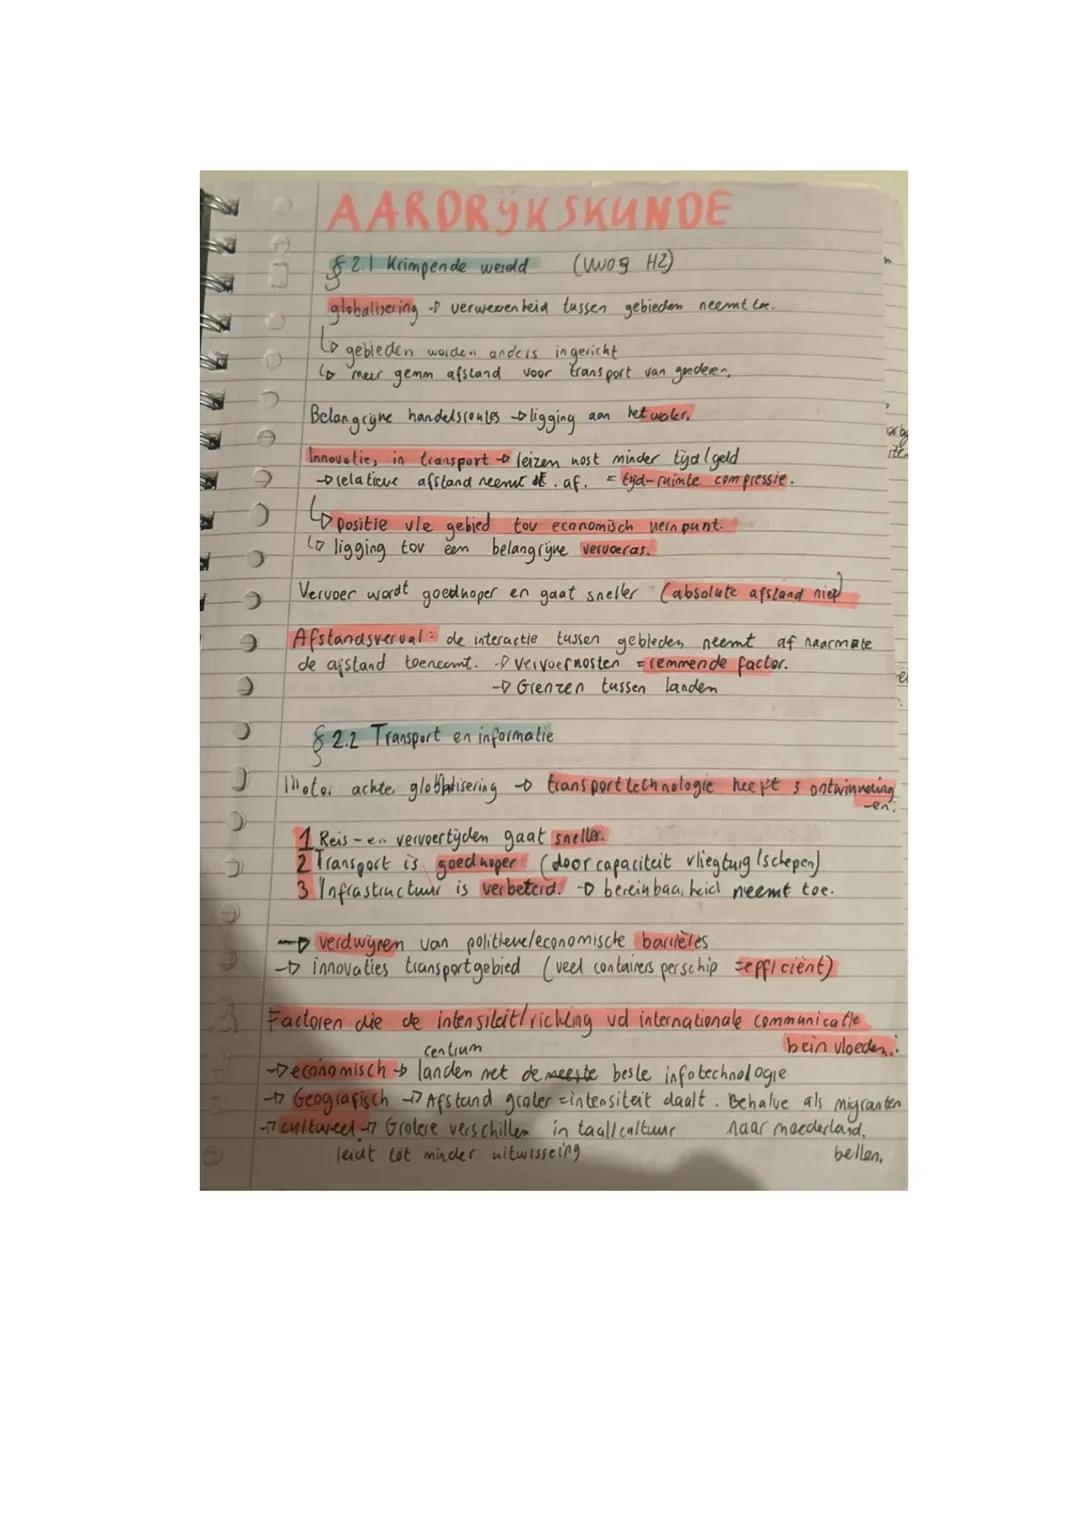 AARDRIJKSKUNDE
§ 2.1 Krimpende wereld (VWO5 H2)
globalisering → verwevenheid tussen gebieden neemt toe.
↳ gebieden worden anders ingericht
↳ meer gemm afstand voor transport van goederen.
Belangrijke handelsroutes → ligging aan het water.
Innovaties in transport → reizen kost minder tijd/geld
→ relatieve afstand neemt af. = tijd-ruimte compressie.
↳ positie v/e gebied tov economisch kernpunt.
↳ ligging tov een belangrijke vervoeras.
Vervoer wordt goedkoper en gaat sneller (absolute afstand niet)
Afstandsverval: de interactie tussen gebieden neemt af naarmate
de afstand toeneemt. → vervoerkosten = remmende factor.
→ Grenzen tussen landen
§ 2.2 Transport en informatie
Motor achter globalisering → transporttechnologie heeft 3 ontwikkeling
-en:
1 Reis-en vervoertijden gaat sneller.
2 Transport is goedkoper (door capaciteit vliegtuig/schepen)
3 Infrastructuur is verbeterd. → bereikbaarheid neemt toe.
→ verdwijnen van politieke/economische barrières
→ innovaties transportgebied (veel containers per schip = efficiënt)
Factoren die de intensiteit/richting vd internationale communicatie
beïnvloeden:
centrum
→ economisch → landen met de meeste beste infotechnologie
→ Geografisch → Afstand groter = intensiteit daalt. Behalve als migranten
→ cultureel → Grotere verschillen in taal/cultuur naar moederland
leidt tot minder uitwisseing bellen.